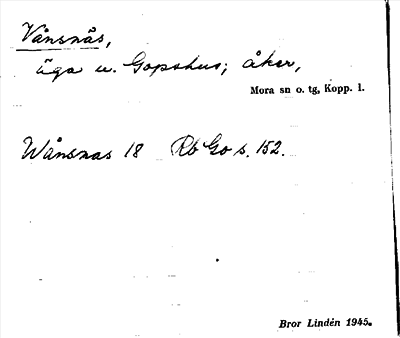 Vånsnås,
äga u. Gopshus; åker,
Mora sn o. tg, Kopp. l.
Wånsnas 18 Rb Go s. 152.
Bror Lindén 1945.